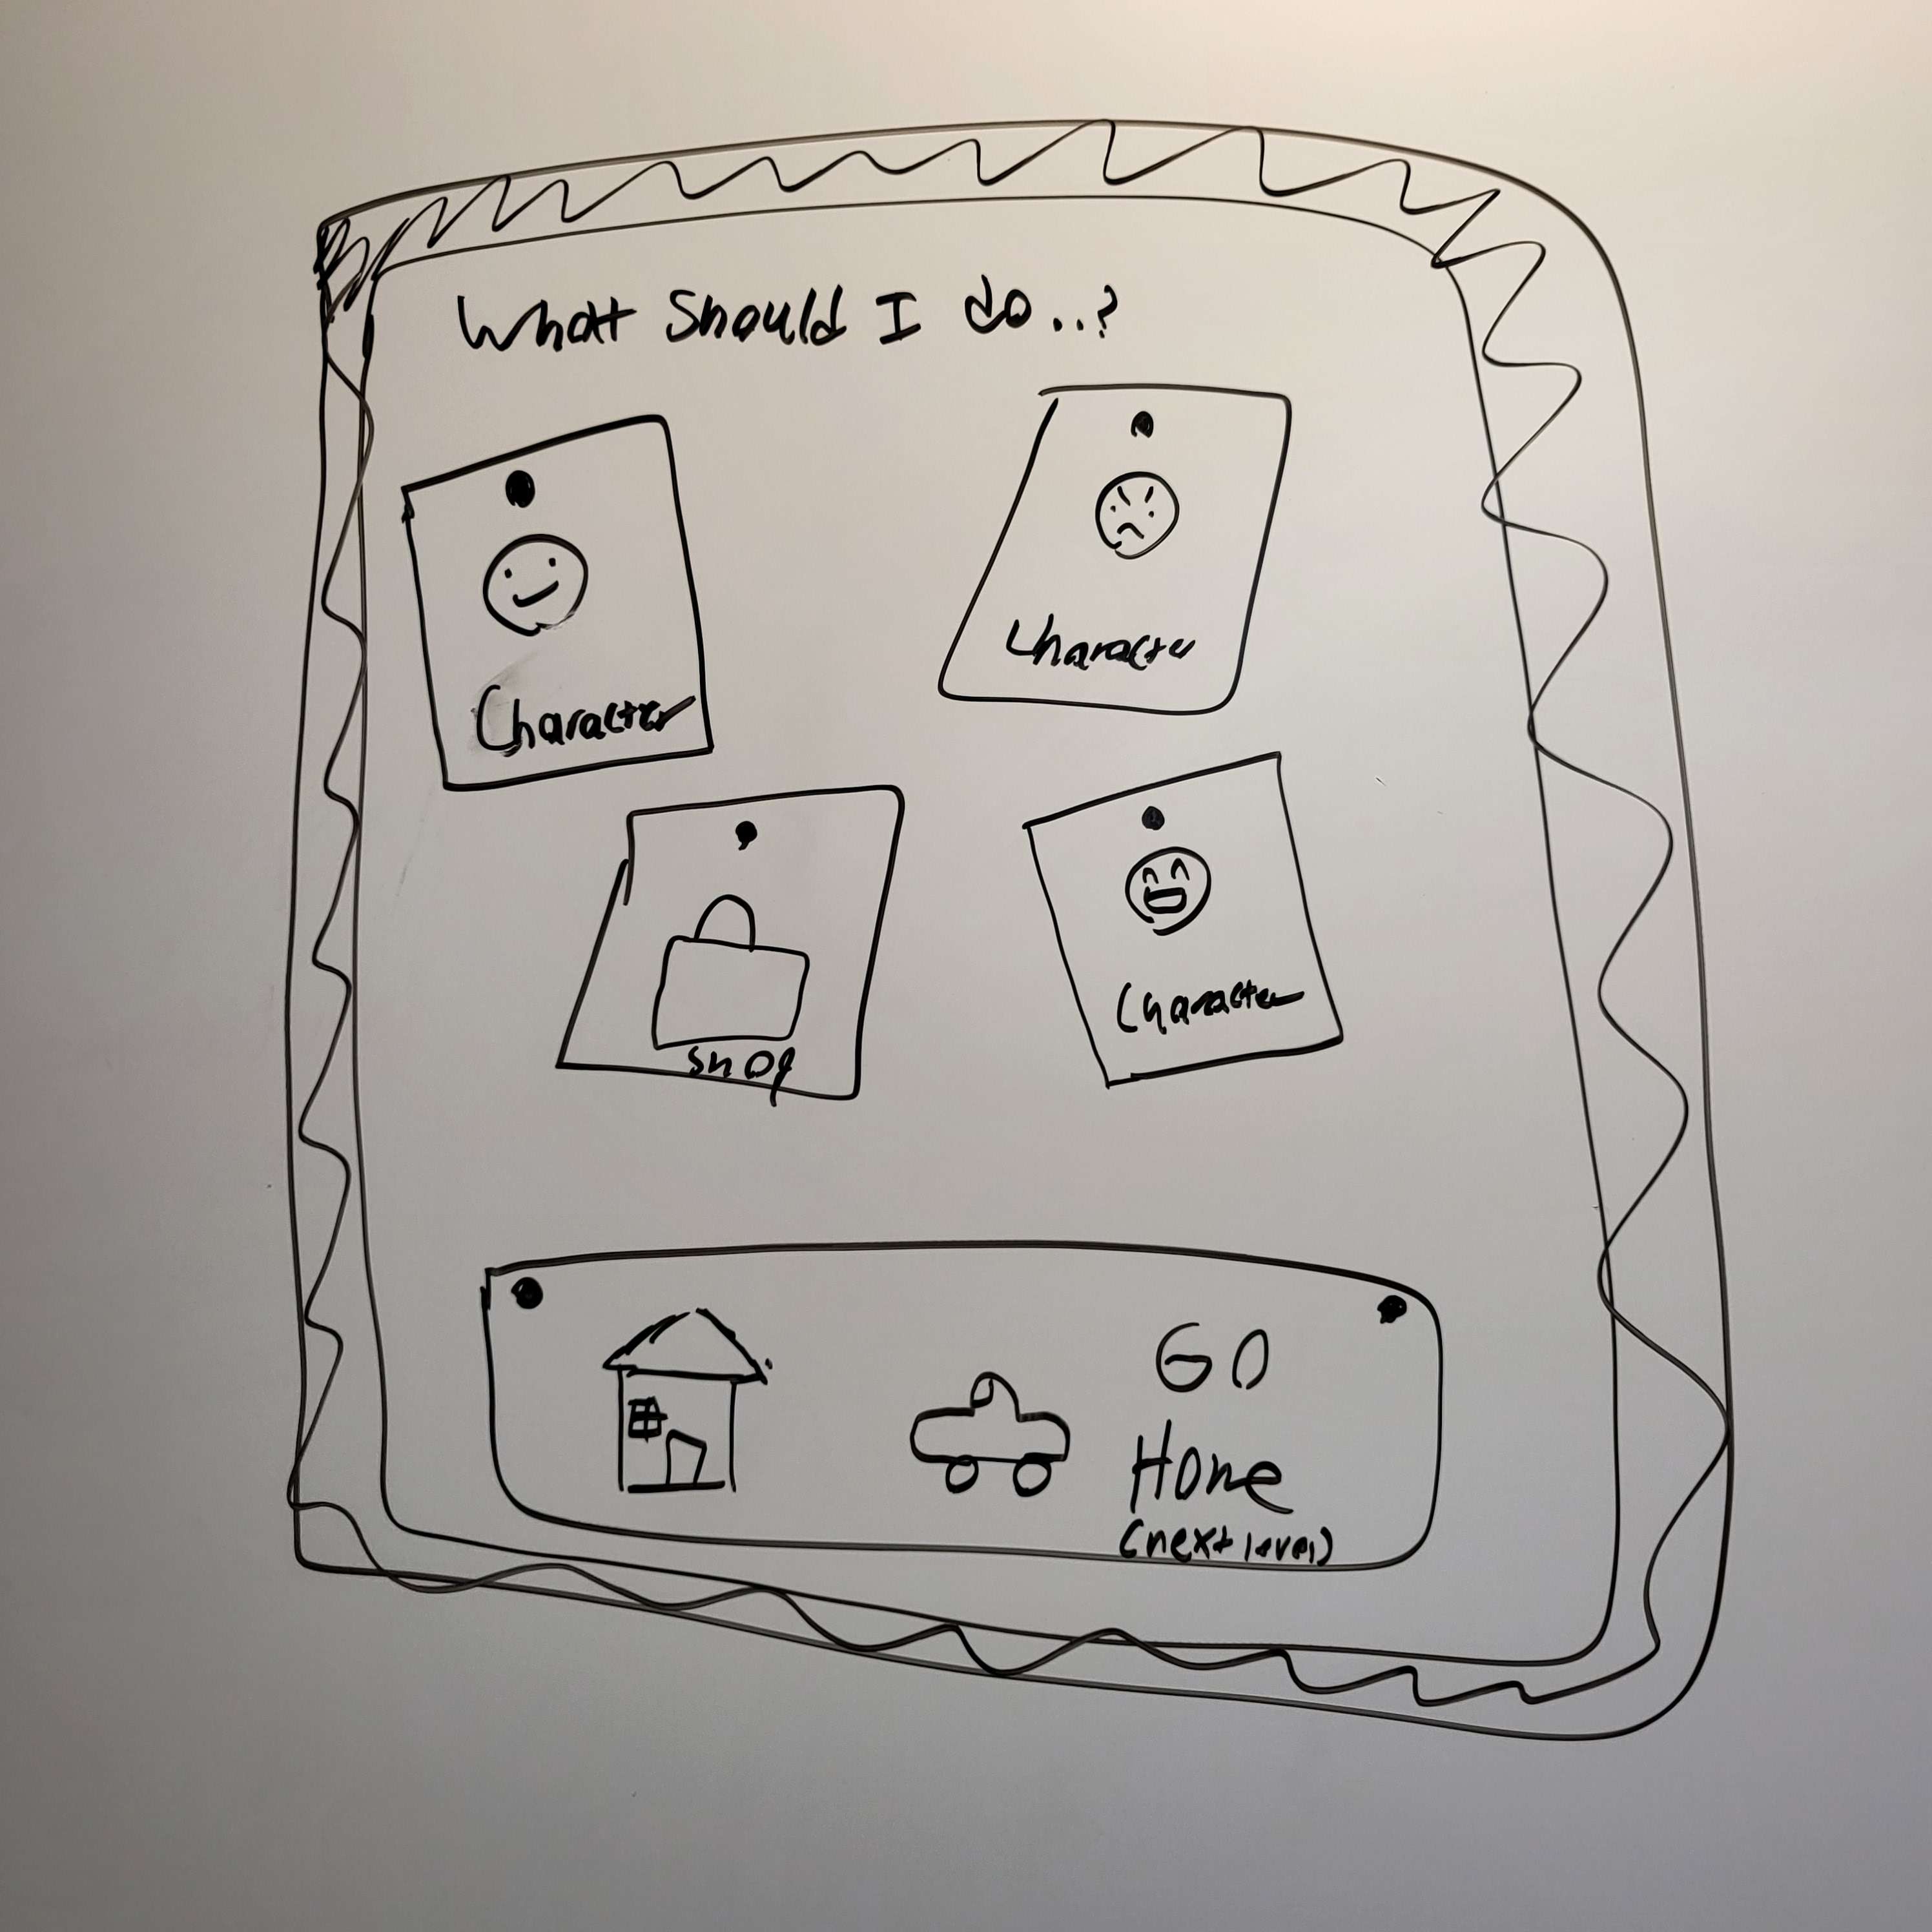 What Should I do..?
Character
Character
Shop
Character
GO
Home
(next level)